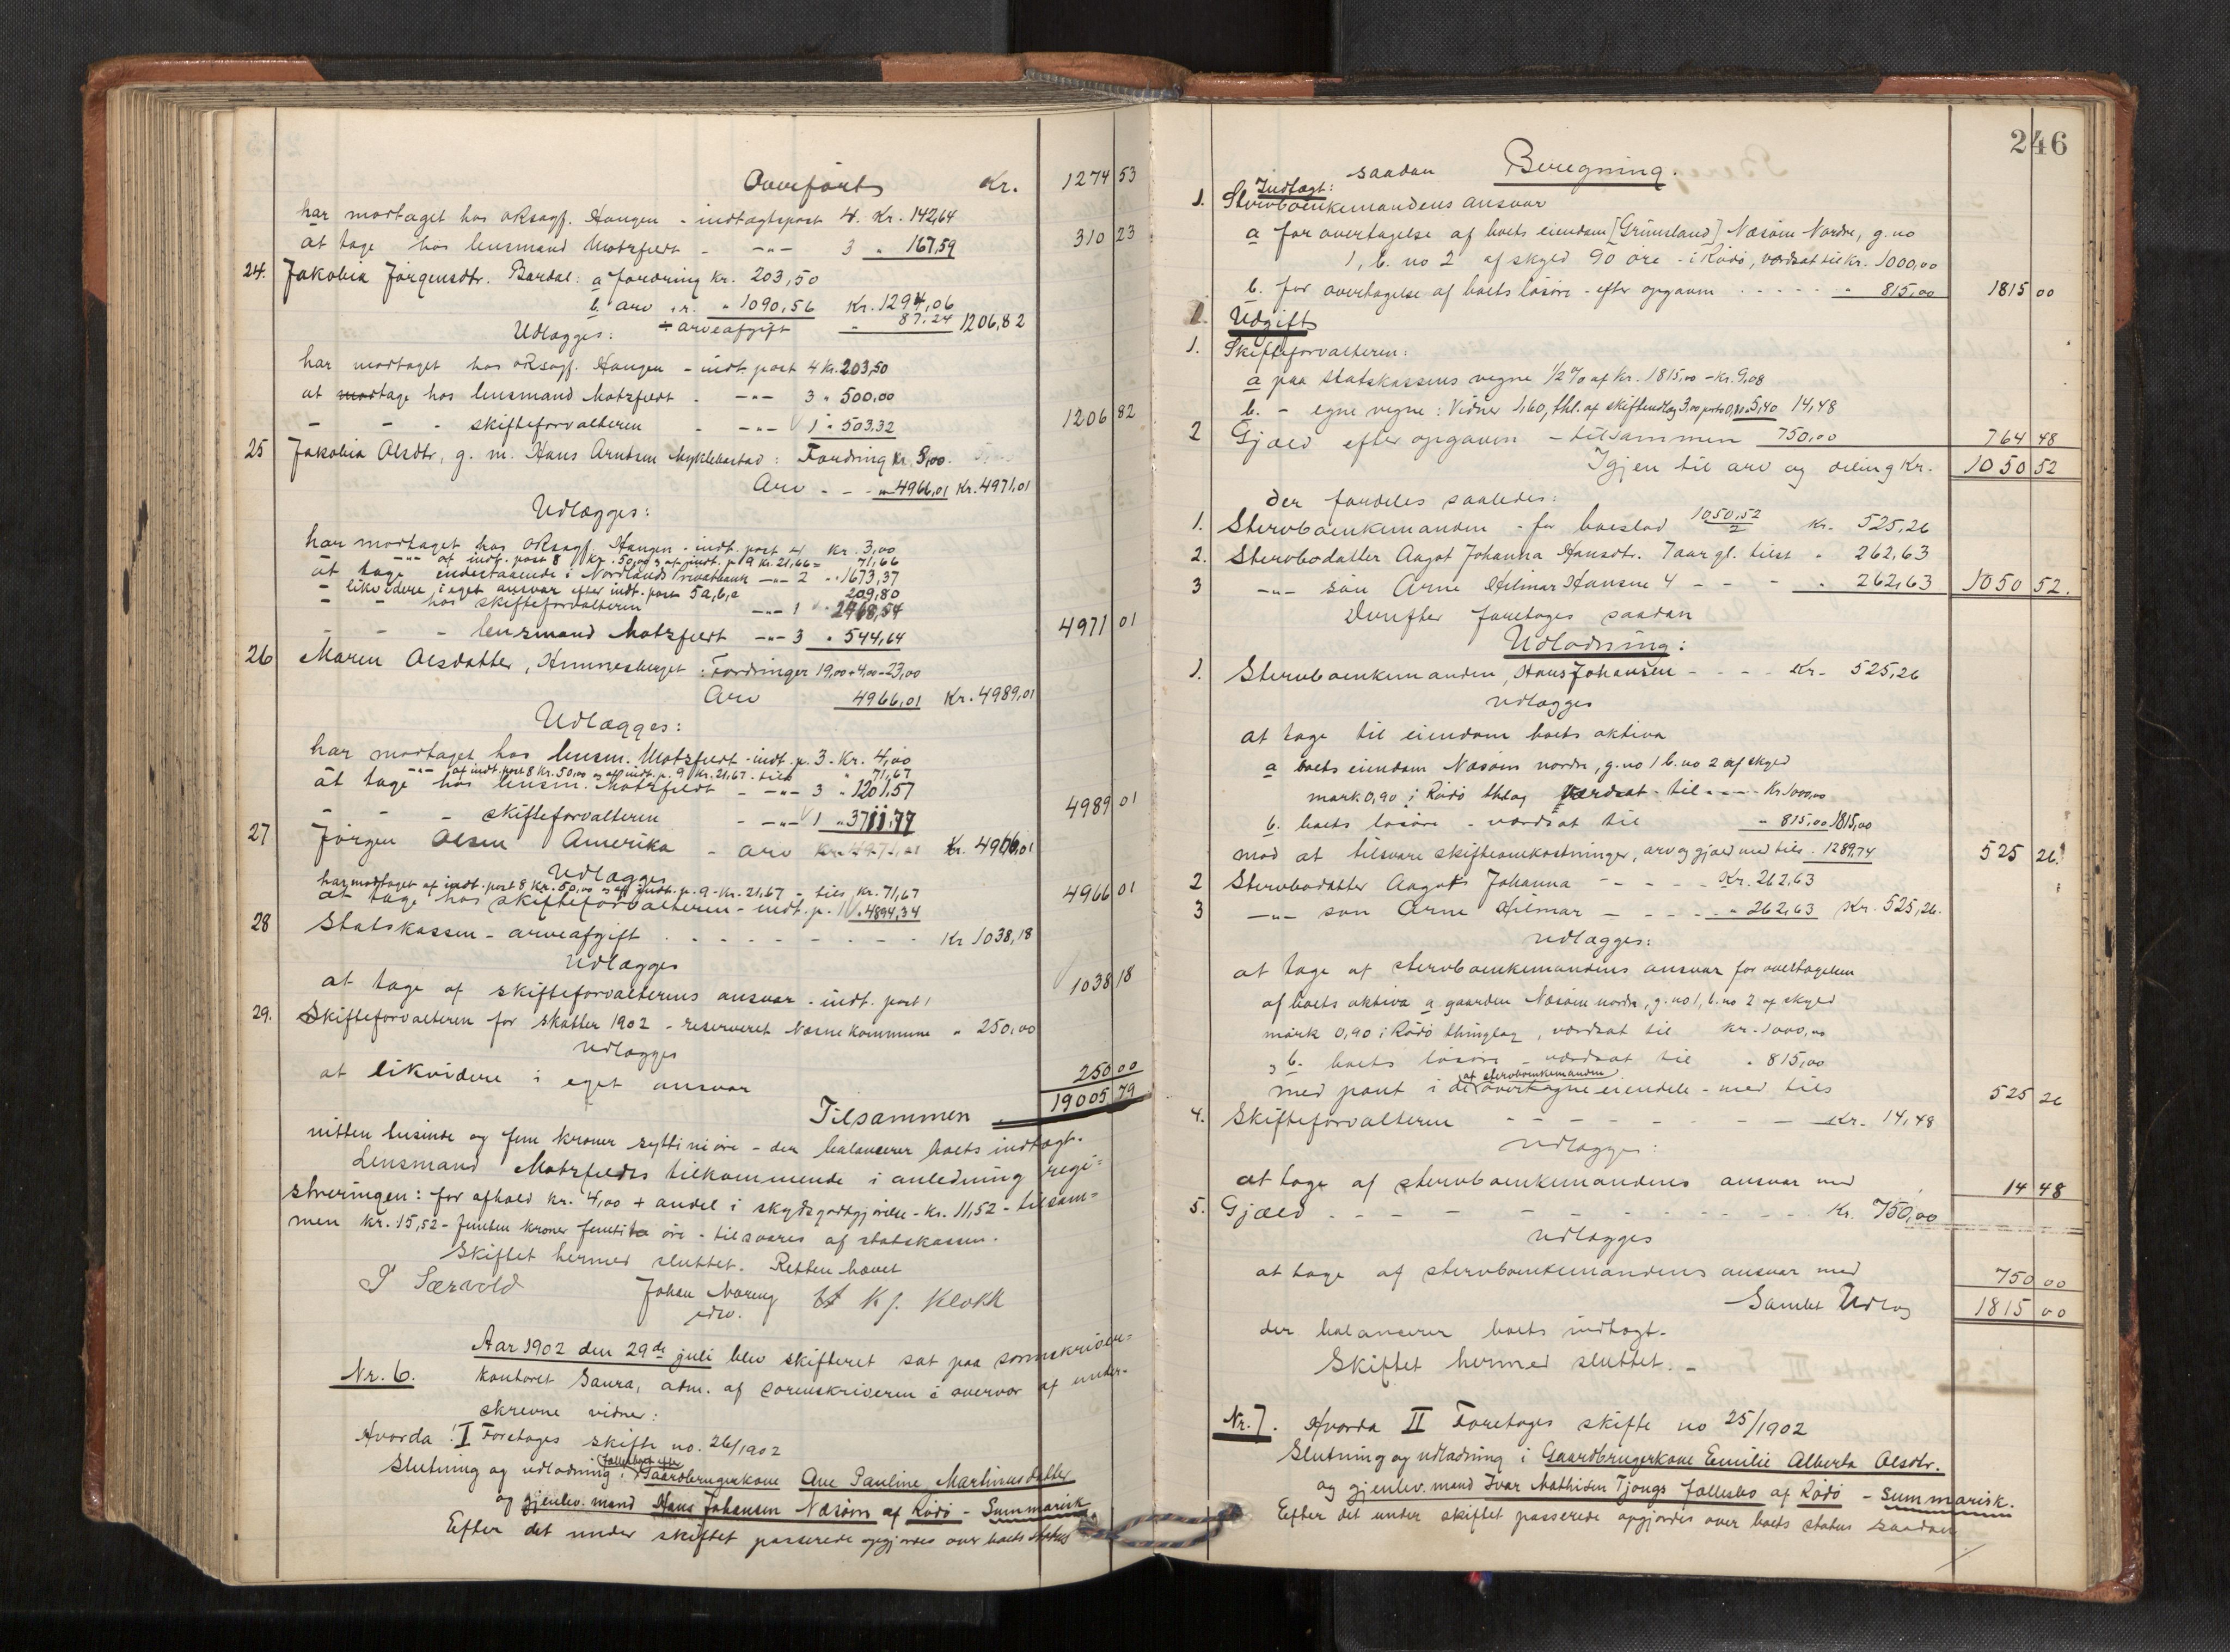 Overført Kr. 1274 53
har modtaget hos oRsagf. Haugen - indtægtspost 4. Kr. 142,64
at tage hos lensmand Motzfeldt - -"- 3 " 167,59 310 23
24. Jakobia Jörgensdtr. Bardal: a fordring kr. 203,50
b. arv " 1090,56 Kr. 1294,06
÷ arveafgift " 87.24 1206,82
Udlægges:
har modtaget hos oRsagf. Haugen - indt. post 4 Kr. 203,50
at tage hos lensmand Motzfeldt - -"- 3 " 500,00
- - - skifteforvalteren - -"- 1 " 503,32 1206 82
25 Jakobia Olsdtr, g. m. Hans Arntsen Myklebostad: Fordring kr. 5,00.
Arv - - - " 4966,01 Kr. 4971,01
Udlægges:
har modtaget hos oRsagf. Haugen - indt. post 4 Kr. 3,00
-"- af indt. post 8 Kr. 50,00 og af indt. p. 9 Kr. 21,66 = 71,66
at tage indestaaende i Nordlands Privatbank -"- 2 " 1673,37
- likvidere i eget ansvar efter indt. post 5 a, b, c 209,80
- - hos skifteforvalteren -"- 1 " 2468,54
- - - lensmand Motzfeldt -"- 3 " 544,64 4971 01
26 Maren Olsdatter, Hemnesberget: Fordringer 19,00 + 4,00 = 23,00
Arv 4966,01 Kr. 4989,01
Udlægges:
har modtaget hos lensm. Motzfeldt - indt. p. 3 - Kr. 4,00
-"- af indt. post 8 Kr. 50,00 og af indt. p. 9 Kr. 21,67 - tils " 71,67
at tage hos lensm. Motzfeldt - -"- 3 " 1201,57
- - - skifteforvalteren - -"- 1 " 3711,77 4989 01
27 Jörgen Olsen Amerika - arv Kr. 4966,01
Udlægges
har modtaget af indt. post 8 Kr. 50,00 og af indt. p. 9 - Kr. 21,67 - tils Kr. 71,67
at tage hos skifteforvalteren - indt. p. 1 " 4894,34 4966 01
28 Statskassen - arveafgift - - - - - Kr 1038,18
Udlægges
at tage af skifteforvalterens ansvar - indt. post 1 1038 18
29. Skifteforvalteren for skatter 1902 - reserveret Næsne kommune " 250,00
Udlægges
at likvidere i eget ansvar 250 00
Tilsammen 19005 79
nitten tusinde og fem kroner syttiniøre - der balancerer boets indtægt.
Lensmand Motzfeldts tilkommende i anledning regi=
streringen: for ophold kr. 4,00 + andel i skydsgodtgjörelse - kr. 11,52 - tilsam=
men kr. 15,52 - femten kroner femtito öre - tilsvares af statskassen.
Skiftet hermed sluttet. Retten hævet
Johan Noreng K J. Klokk
edsv.
Aar 1902 den 29de juli blev skifteret sat paa sorenskriver=
Nr. 6. kontoret Saura, adm. af sorenskriveren i overvær af under-
skrevne vidner:
Hvorda: I Foretoges skifte no. 26/1902
fællesboet efter
Slutning og udlodning i Gaardbrugerkone Ane Pauline Martinusdatter
og gjenlev. mand Hans Johansen Næsöen af Rödö - Summarisk.
Efter det under skiftet passerede opgjordes over boets status
246
saadan Beregning.
Indtægt:
1. Stervboenkemandens ansvar
a for overtagelse af boets eiendom [Grönsland] Næsöen Nordre, g. no
1, b. no 2 af skyld 90 öre - i Rödö, værdsat til kr. 1000,00
b. for overtagelse af boets lösöre - efter opgaven - - - " 815,00 1815 00
2. Udgift
1. Skifteforvalteren:
a paa statskassens vegne 1/2 % af kr. 1815,00 - Kr. 9,08
b. - egne vegne: Vidner 1,60, thl. af skifteudlæg 3,00 porto 0,80 = 5,40 14,48
2 Gjæld efter opgaven - tilsammen 750,00 764 48
Igjen til arv og deling Kr. 1050 52
der fordeles saaledes:
1. Stervboenkemanden - for boeslod 1050,52/2 Kr. 525,26
2. Stervbodatter Aagot Johanna Hansdtr. 7 aar gl. tilst " 262,63
3 -"- sön Arne Hilmar Hansen 4 - - - " 262,63 1050 52.
Derefter foretoges saadan
Udlodning:
1. Stervboenkemanden, Hans Johansen - - - Kr. 525,26
udlægges
at tage til eiendom boets aktiva
a boets eiendom Næsöen nordre, g. no 1 b. no 2 af skyld
mark 0,90 i Rödö thlag værdsat til - - - Kr. 1000,00
b. boets lösöre - værdsat til " 815,00 1815,00
mod at tilsvare skifteomkostninger, arv og gjæld med tils. 1289,74 525 26
2 Stervbodatter Aagot Johanna - - - - Kr. 262,63
3 -"- sön Arne Hilmar - - - - " 262,63 Kr. 525,26.
udlægges:
at tage af stervboenkemandens ansvar for overtagelsen
af boets aktiva a gaarden Næsöen nordre, g. no 1, b. no 2 af skyld
mark 0,90 i Rödö thinglag, værdsat til Kr. 1000,00
b. boets lösöre - værdsat til " 815,00
af stervboenkemanden
med pant i de overtagne eiendele - med tils 525 26
4. Skifteforvalteren - - - - - - Kr. 14,48
udlægges:
at tage af stervboenkemandens ansvar med 14 48
5. Gjæld - - - - - - - Kr. 750,00
udlægges
at tage af stervboenkemandens ansvar med 750 00
Samlet Udlæg 1815 00
der balancerer boets indtægt.
Skiftet hermed sluttet. -
Nr. 7. Hvorda II Foretoges skifte no 25/1902
Slutning og udlodning i Gaardbrugerkone Emilie Alberta Olsdtr.
og gjenlev. mand Ivar Mathisen Tjongs fællesbo af Rödö - Summarisk.
Efter det under skiftet passerede opgjordes over boets status saadan